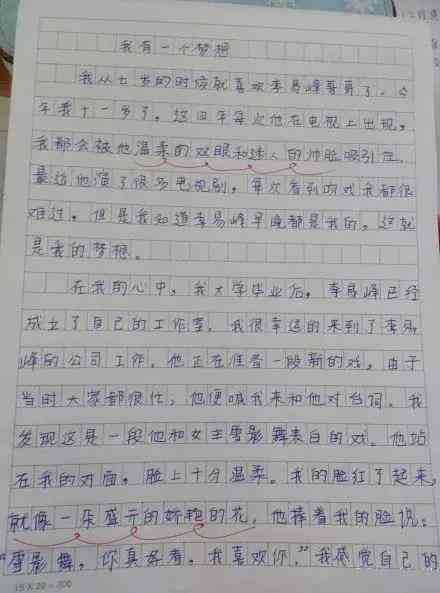 我有一个梦想
我从七岁的时候就喜欢李易峰哥哥了。今
年我十一岁了。这四年每次他在电视上出现，
我都会被他温柔的双眼和迷人的帅脸吸引住，
最近他演了很多电视剧，每次看到吻戏我都很
难过，但是我知道李易峰早晚都是我的。这就
是我的梦想。
在我的心中，我大学毕业后，李易峰已经
成立了自己的工作室，我很幸运的来到了李易
峰的公司工作。他正在准备一段新的戏，由于
当时大家都很忙，他便喊我来和他对台词。我
发现这是一段他和女主雪影舞表白的戏。他站
在我的对面，脸上十分温柔。我的脸红了起来，
就像一朵盛开的娇艳的花，他捧着我的脸说：
“雪影舞，你真好看，我喜欢你，”我感觉自己的
15×20=300